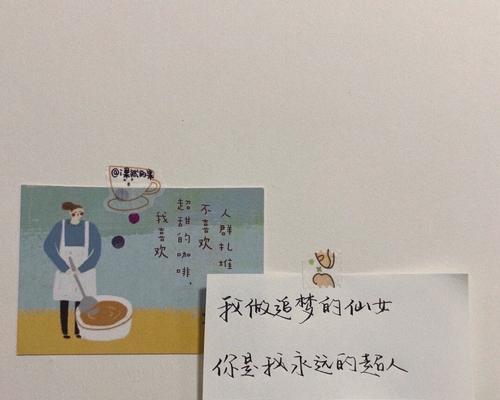 我喜欢
超甜的咖啡,
不喜欢
人群扎堆
我做追梦的仙女
你是我永远的超人